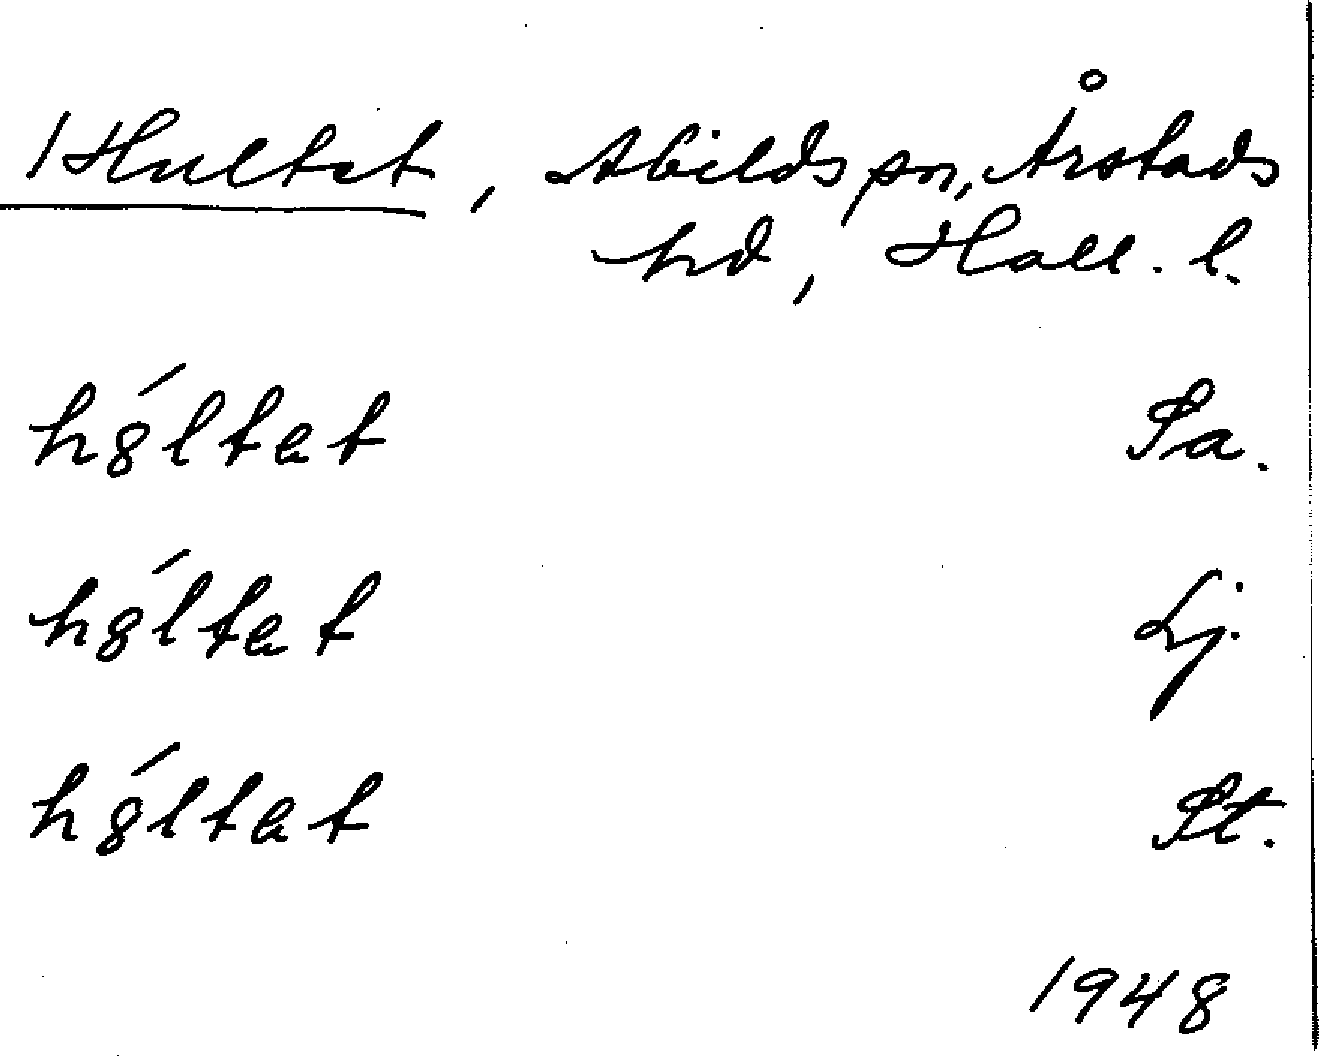 /Hultet, Abilds sn, Årstads
hd, Hall. l.
h8́ltet Sa.
h8́ltet Lj.
h8́ltet St.
1948